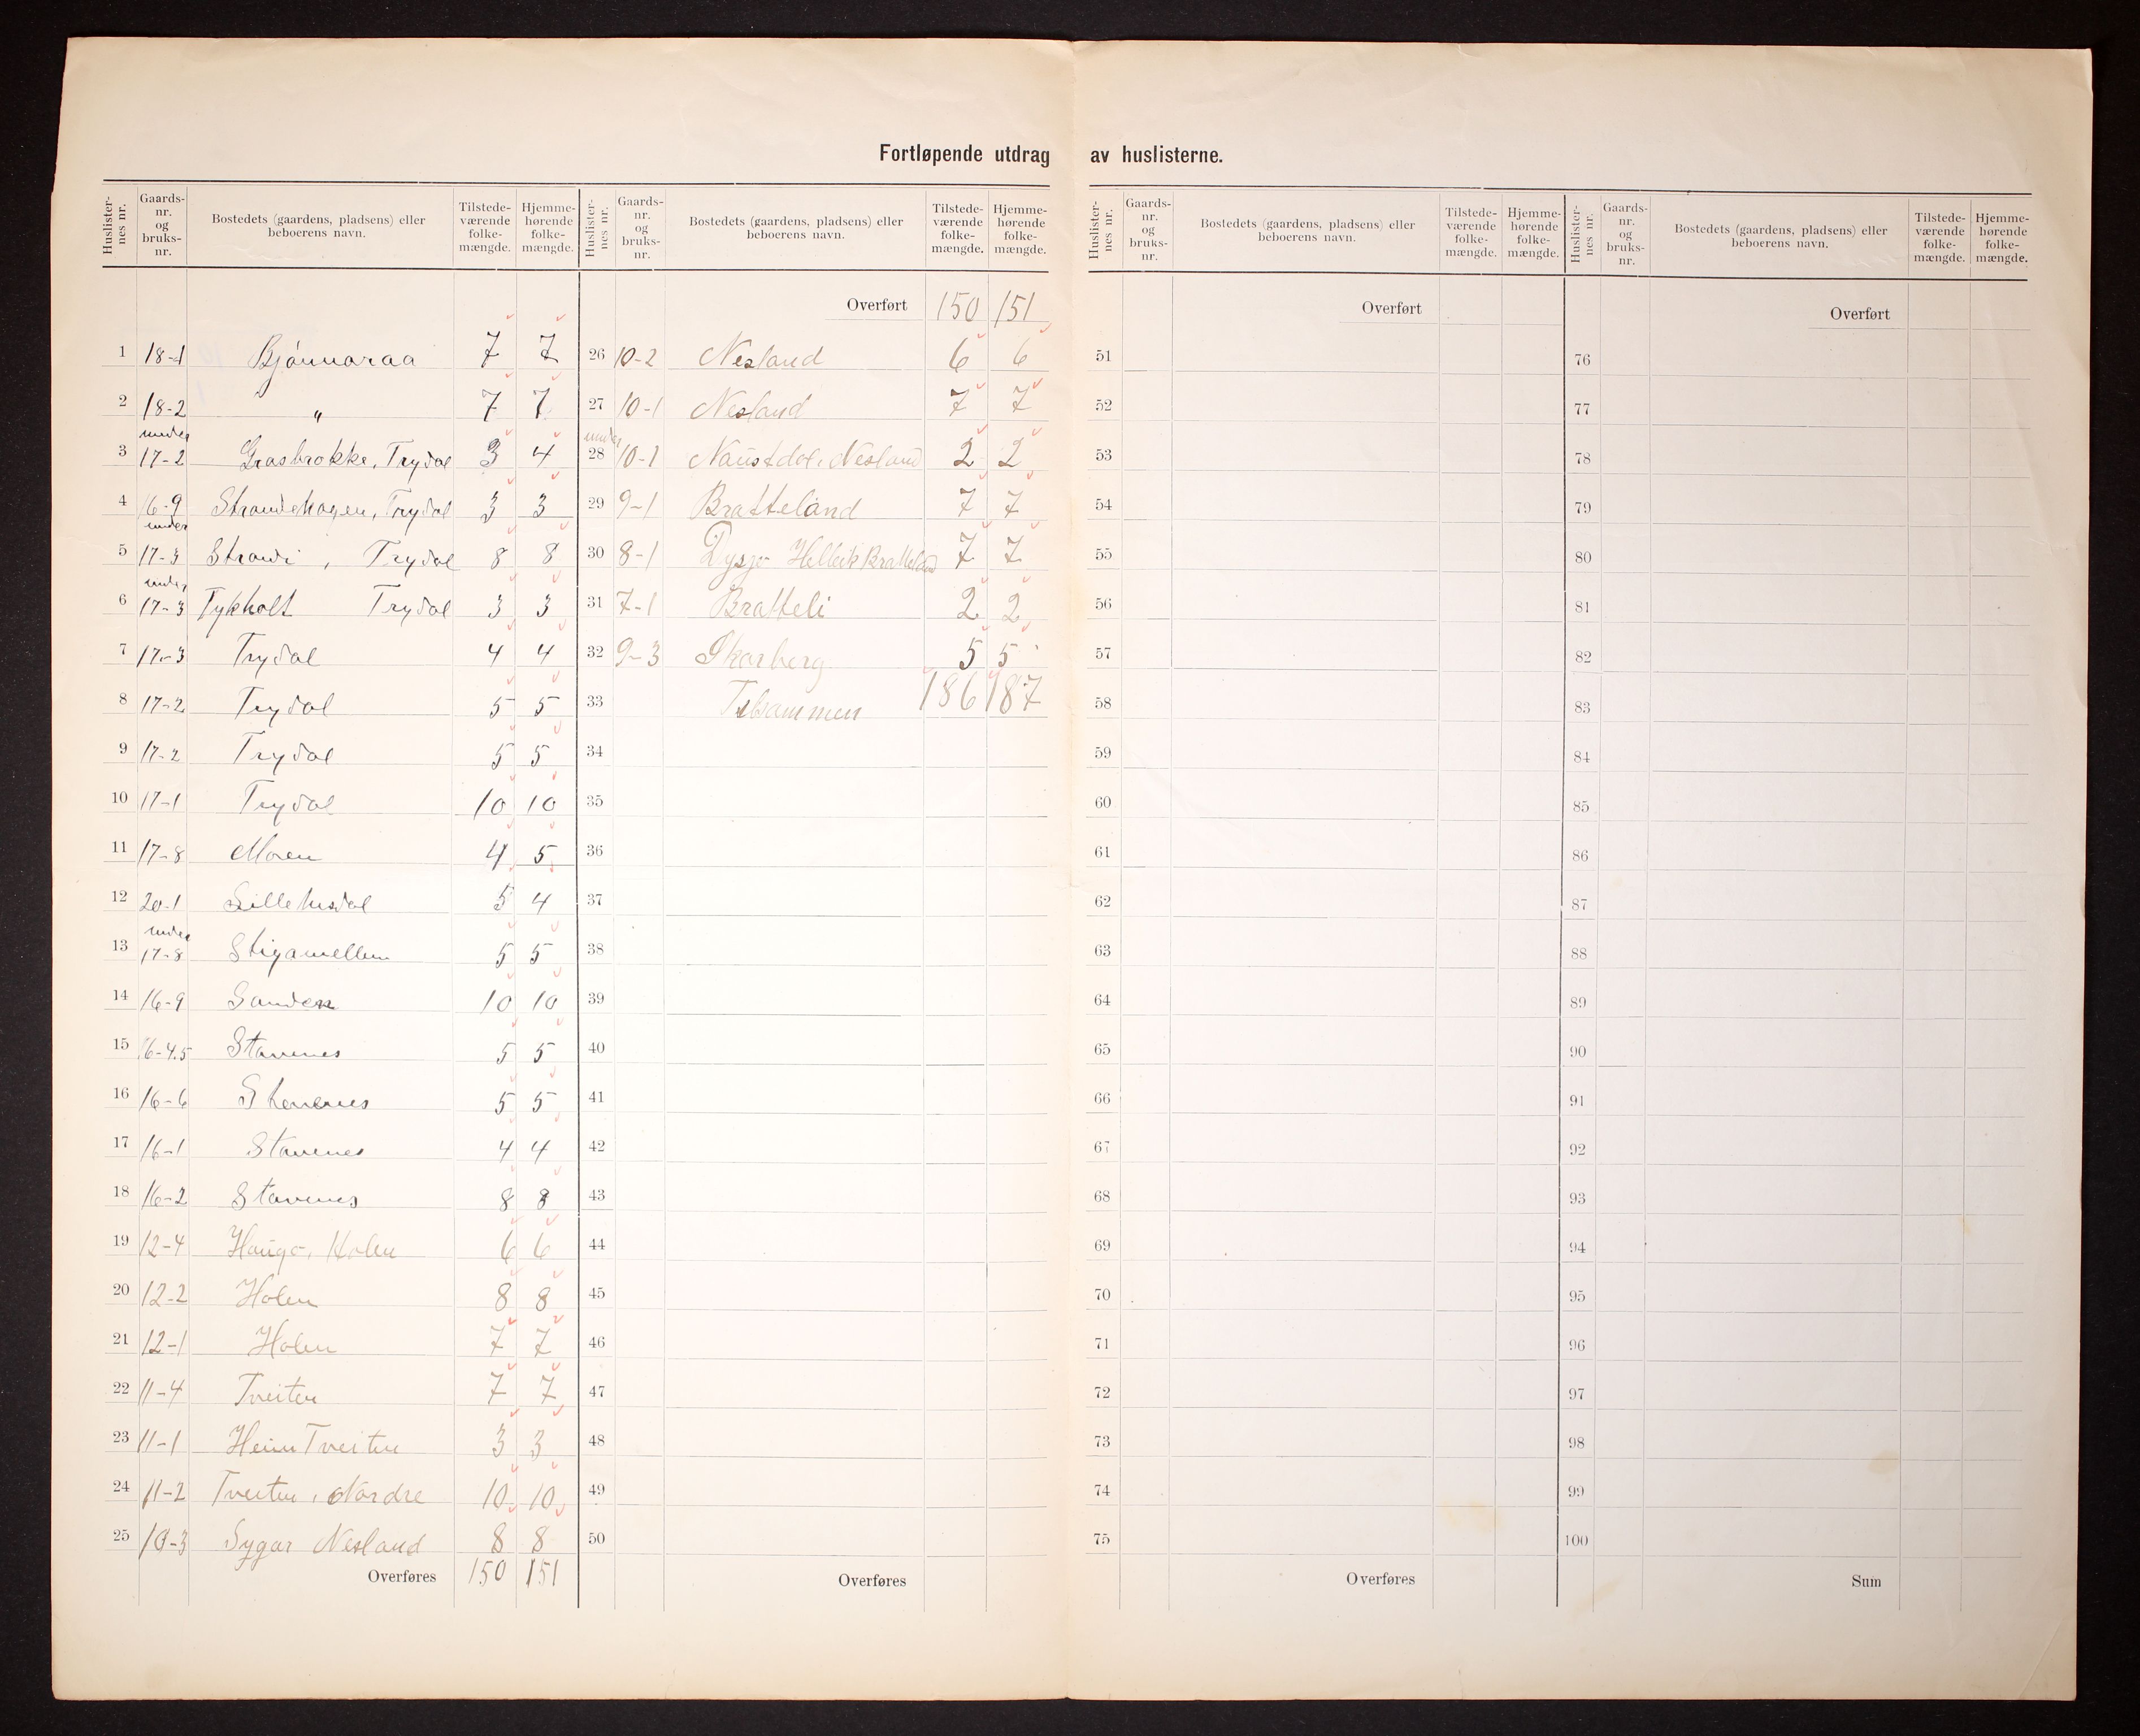 Fortløpende utdrag av huslisterne.
Huslister-nes nr. Gaards-nr. og bruks-nr. Bostedets (gaardens, pladsens) eller beboerens navn. Tilstede-værende folke-mængde. Hjemme-hørende folke-mængde.
1 18-1 Bjønnaraa 7 7
2 18-2 " 7 7
3 under 17-2 Grasbrokke, Trydal 3 4
4 16-9 Strandehagen, Trydal 3 3
5 under 17-3 Strand, Trydal 8 8
6 under 17-3 Tykholt Trydal 3 3
7 17-3 Trydal 4 4
8 17-2 Trydal 5 5
9 17-2 Trydal 5 5
10 17-1 Trydal 10 10
11 17-8 Moren 4 5
12 20-1 Lillehusdal 5 4
13 under 17-8 Stigamellum 5 5
14 16-9 Sanden 10 10
15 16-4.5 Stavenes 5 5
16 16-6 Stavenes 5 5
17 16-1 Stavenes 4 4
18 16-2 Stavenes 8 8
19 12-4 Haugo, Holen 6 6
20 12-2 Holen 8 8
21 12-1 Holen 7 7
22 11-4 Tveiten 7 7
23 11-1 Heim Tveiten 3 3
24 11-2 Tveiten, Nordre 10 10
25 10-3 Sygar Nesland 8 8
Overføres 150 151
Huslister-nes nr. Gaards-nr. og bruks-nr. Bostedets (gaardens, pladsens) eller beboerens navn. Tilstede-værende folke-mængde. Hjemme-hørende folke-mængde.
Overført 150 151
26 10-2 Nesland 6 6
27 10-1 Nesland 7 7
28 under 10-1 Naustdal, Nesland 2 2
29 9-1 Bratteland 7 7
30 8-1 Dysjo Helleik Bratteland 7 7
31 7-1 Bratteli 2 2
32 9-3 Skarberg 5 5
33 Tilsammen 186 187
34
35
36
37
38
39
40
41
42
43
44
45
46
47
48
49
50
Overføres
Huslister-nes nr. Gaards-nr. og bruks-nr. Bostedets (gaardens, pladsens) eller beboerens navn. Tilstede-værende folke-mængde. Hjemme-hørende folke-mængde.
Overført
51
52
53
54
55
56
57
58
59
60
61
62
63
64
65
66
67
68
69
70
71
72
73
74
75
Overføres
Huslister-nes nr. Gaards-nr. og bruks-nr. Bostedets (gaardens, pladsens) eller beboerens navn. Tilstede-værende folke-mængde. Hjemme-hørende folke-mængde.
Overført
76
77
78
79
80
81
82
83
84
85
86
87
88
89
90
91
92
93
94
95
96
97
98
99
100
Sum